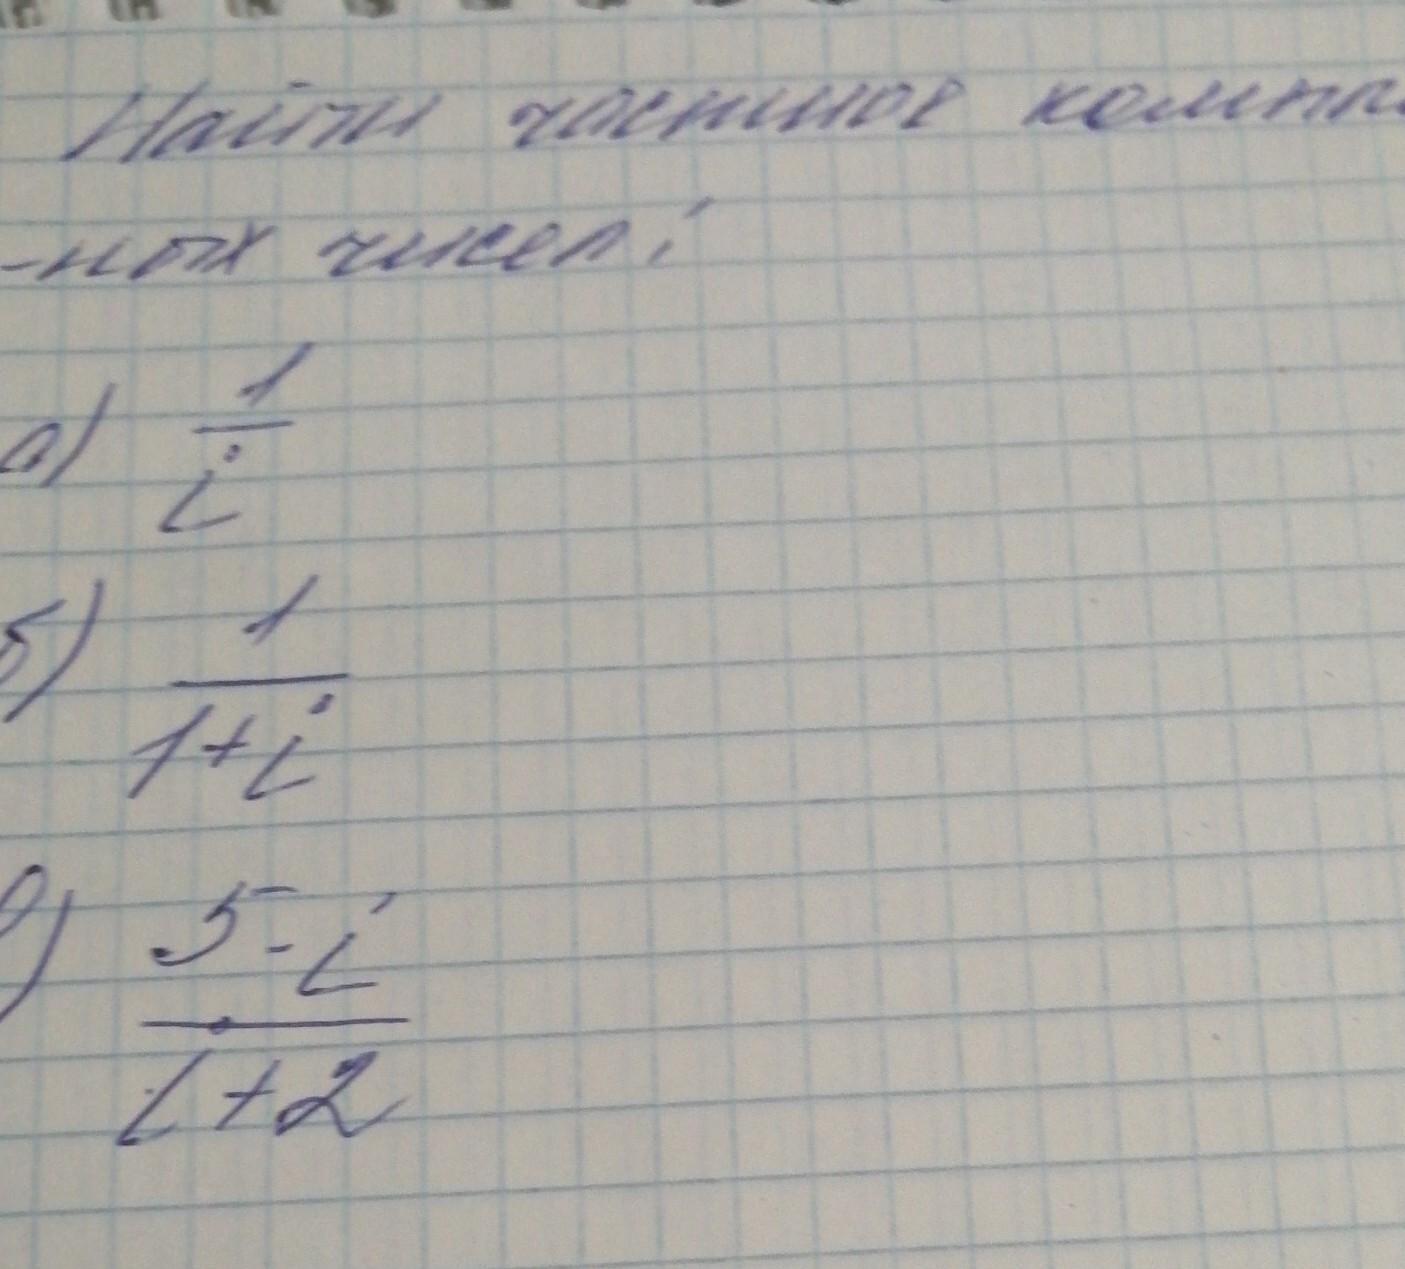 Найти частное компл
-ных чисел:
а) 1/i
б) 1/1+i
в) 5-i/i+2